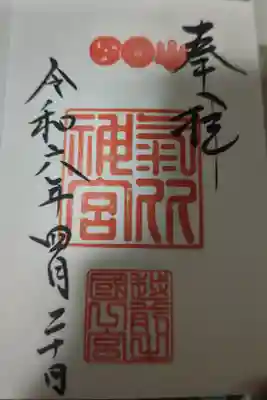 奉拝
氣比
神宮
越前之
國一宮
令和六年四月二十日